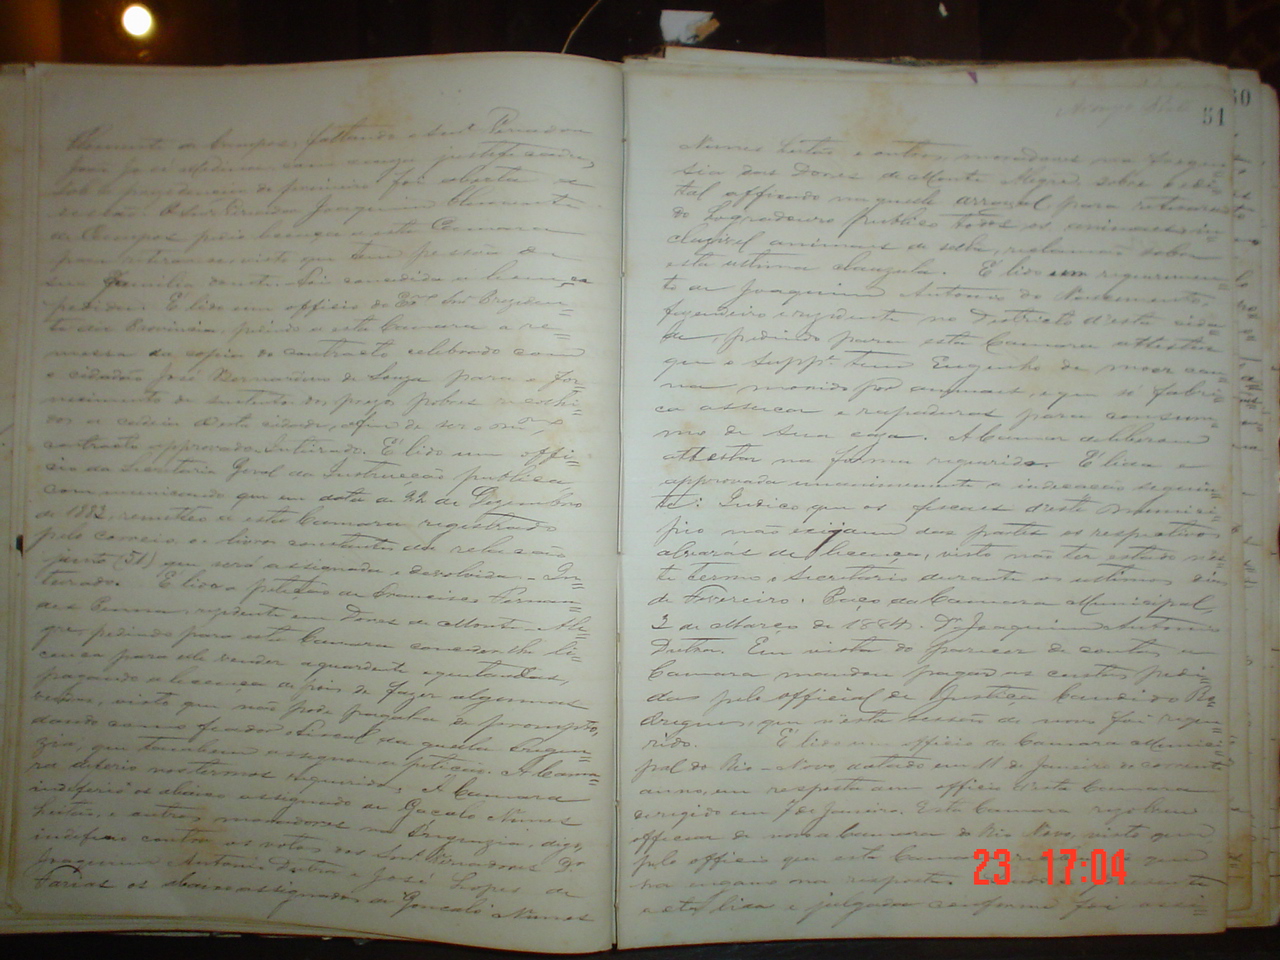 Clemente de Campos, faltando o Snr. Vereador
José
sob a presidencia do primeiro foi aberta a
sessão. O Snr. Vereador Joaquim Clemente
de Campos pedio licença a esta Camara
para retirar-se visto que tem pessôa de
sua familia doente. Foi concedida a licença
pedida. E' lido um officio do Exmo. Snr. Presiden=
te da Provincia, pedindo a esta Camara a re=
messa da copia do contracto celebrado com
o cidadão José Bernardino de Souza para o for=
necimento de sustento dos prezos pobres recolhi=
dos a cadeia desta cidade, afim de ser o mmo.
contracto approvado. Inteirado. E' lido um offi=
cio da Secretaria Geral da Instrucção publica
communicando que em data de 22 de Dezembro
de 1883, remetteo a esta Camara registrado
pelo correio os livros constantes da relação
junto (51) que será assignada e devolvida. In=
teirado. E' lida a petição de Francisco Fernan=
des Penna, rezidente em Dores de Monte Ale=
gre, pedindo para esta Camara conceder-lhe li=
cença para elle vender aguardente e quitandas,
pagando a licença depois de fazer algumas
vendas, visto que não pode pagal-a de prompto,
dando como fiador o fiscal da quella Fregue=
zia, que tambem assignou a petição. A Cama=
ra deferio nos termos requerido. A Camara
indeferio os abaixo assignado de Gonçalo Nunes
Leitão, e outros moradores na Freguezia, digo,
indeferio contra os votos dos Snrs. Vereadores Dr.
Joaquim Antonio Dutra e José Lopes de
Farias os abaixo assignados de Gonçalo Nunes
51
Nunes Leitão e outros, moradores na Fregue=
sia das Dores de Monte Alegre, sobre o edi=
tal affixado naquelle arraial para retirarem
do Logradouro publico todos os animaes in=
clusivel animaes de sella, reclamão sobre
esta ultima clausula. E' lido um requerimen=
to de Joaquim Antonio do Nascimento,
fazendeiro e rezidente no Districto d'esta cida=
de, pedindo para esta Camara attestar
que o Suppe. tem Engenho de moer can=
na movido por animaes, e que só fabri=
ca assucar e rapaduras para consum=
mo de sua caza. A Camara deliberou
attestar na forma requerida. E' lida e
approvada unanimemente a indicação seguin=
te: Indico que os fiscaes d'este Munici=
pio não exijam das partes os respectivos
alvarás de licença, visto não ter estado nes=
te termo o Secretario durante os ultimos dias
de Fevereiro. Paço da Camara Municipal,
2 de Março de 1884. Dr. Joaquim Antonio
Dutra. Em vista do parecer de contas, a
Camara mandou pagar as custas pedi=
das pelo official de Justiça Candido Ro=
drigues, que n'esta sessão de novo foi reque=
rido. E' lido um officio da Camara Munici=
pal do Rio-Novo, datado em 11 de Janeiro do corrente
anno, em resposta a um officio d'esta Camara
dirigido em 7 de Janeiro. Esta Camara rezolveu
officiar de novo a Camara do Rio Novo, visto que
pelo officio que esta Camara
ha engano na resposta.
esta lida e julgada conforme foi assi=
50
23 17:04